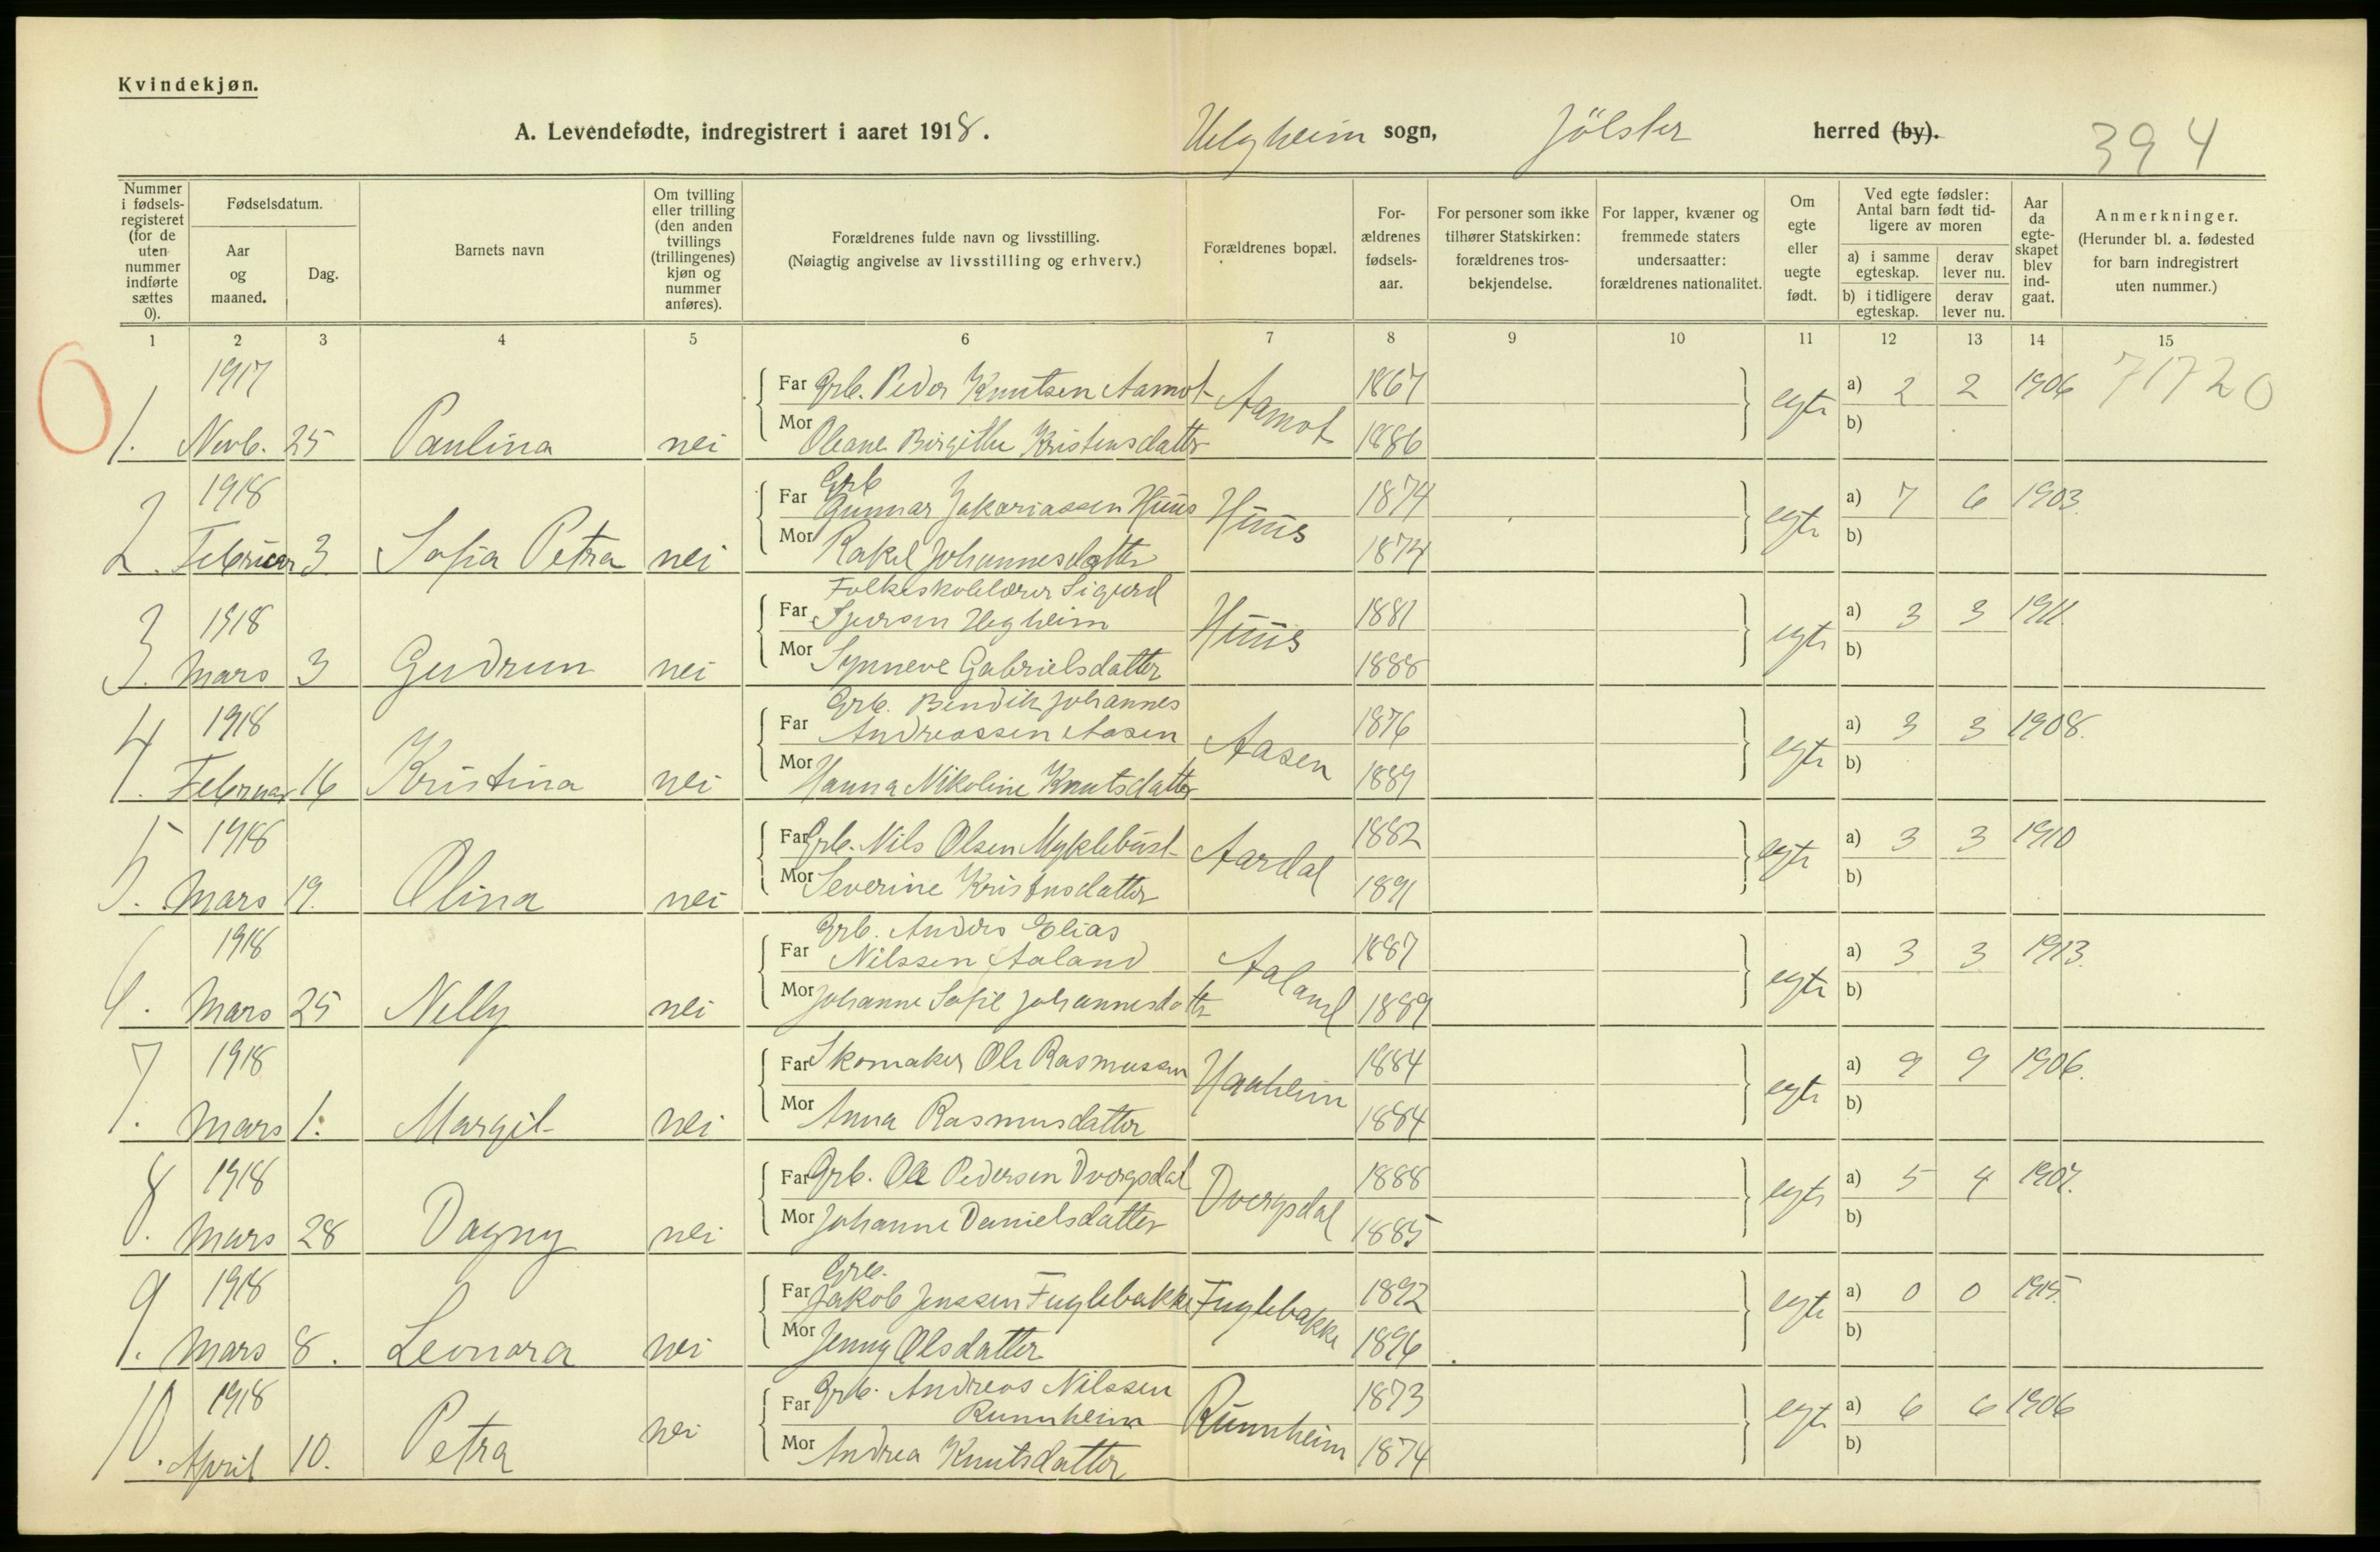 Kvindekjøn.
A. Levendefødte, indregistrert i aaret 1918. Helgheim sogn, Jölster herred (by). 394
Nummer i fødsels-registeret (for de uten nummer indførte sættes 0).
Fødselsdatum.
Aar og maaned.
Dag.
Barnets navn
Om tvilling eller trilling (den anden tvillings (trillingenes) kjøn og nummer anføres).
Forældrenes fulde navn og livsstilling.
(Nøiagtig angivelse av livsstilling og erhverv.)
Forældrenes bopæl.
For-ældrenes fødsels-aar.
For personer som ikke tilhører Statskirken: forældrenes tros-bekjendelse.
For lapper, kvæner og fremmede staters undersaatter: forældrenes nationalitet.
Om egte eller uegte født.
Ved egte fødsler: Antal barn født tid-ligere av moren
a) i samme egteskap.
derav lever nu.
b) i tidligere egteskap.
derav lever nu.
Aar da egte-skapet blev ind-gaat.
Anmerkninger.
(Herunder bl. a. fødested for barn indregistrert uten nummer.)
1 2 3 4 5 6 7 8 9 10 11 12 13 14 15
0
1917 Far Grb. Peder Knutsen Aamot Aamot 1867 egte a) 2 2 1906 71720
1. Novb. 25 Paulina nei Mor Oleane Birgitte Kristensdatter 1886 b)
2 1918 Grb
Far Gunnar Zakariassen Huus Huus 1874 egte a) 7 6 1903.
2. Februar 3 Sofia Petra nei Mor Rakel Johannesdatter 1874 b)
3 1918 Folkeskolelærer Sigurd
Far Sjursen Hegheim Huus 1881 egte a) 3 3 1911.
3. Mars 3 Gudrun nei Mor Synneve Gabrielsdatter 1888 b)
4 1918 Grb. Bendik Johannes
Far Andreassen Aasen Aasen 1876 egte a) 3 3 1908.
4. Februar 16 Kristina nei Mor Hanna Nikoline Knutsdatter 1889 b)
5 1918 Far Grb. Nils Olsen Myklebust Aardal 1882 egte a) 3 3 1910
5. Mars 19. Olina nei Mor Severine Kristensdatter 1891 b)
6 1918 Grb. Anders Elias
Far Nilssen Aaland Aaland 1887 egte a) 3 3 1913.
6. Mars 25 Nelly nei Mor Johanne Sofie Johannesdatter 1889 b)
7 1918 Far Skomaker Ole Rasmussen 1884 egte a) 9 9 1906.
7. Mars 1. Margit nei Mor Anna Rasmusdatter 1884 b)
8 1918 Far Grb. Ole Pedersen Dvergsdal Dvergsdal 1888 egte a) 5 4 1907.
8. Mars 28 Dagny nei Mor Johanne Danielsdatter 1885 b)
9 1918 Grb.
Far Jakob Jenssen Fuglebakke Fuglebakke 1892 egte a) 0 0 1915.
9. Mars 8. Leonora nei Mor Jenny Olsdatter 1896 b)
10 1918 Far Grb. Andreas Nilssen
Runnheim Runnheim 1873 egte a) 6 6 1906
10. April 10. Petra nei Mor Andrea Knutsdatter 1874 b)